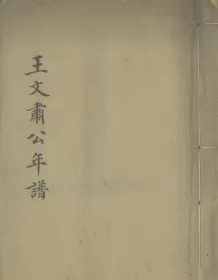 王文肅公年譜